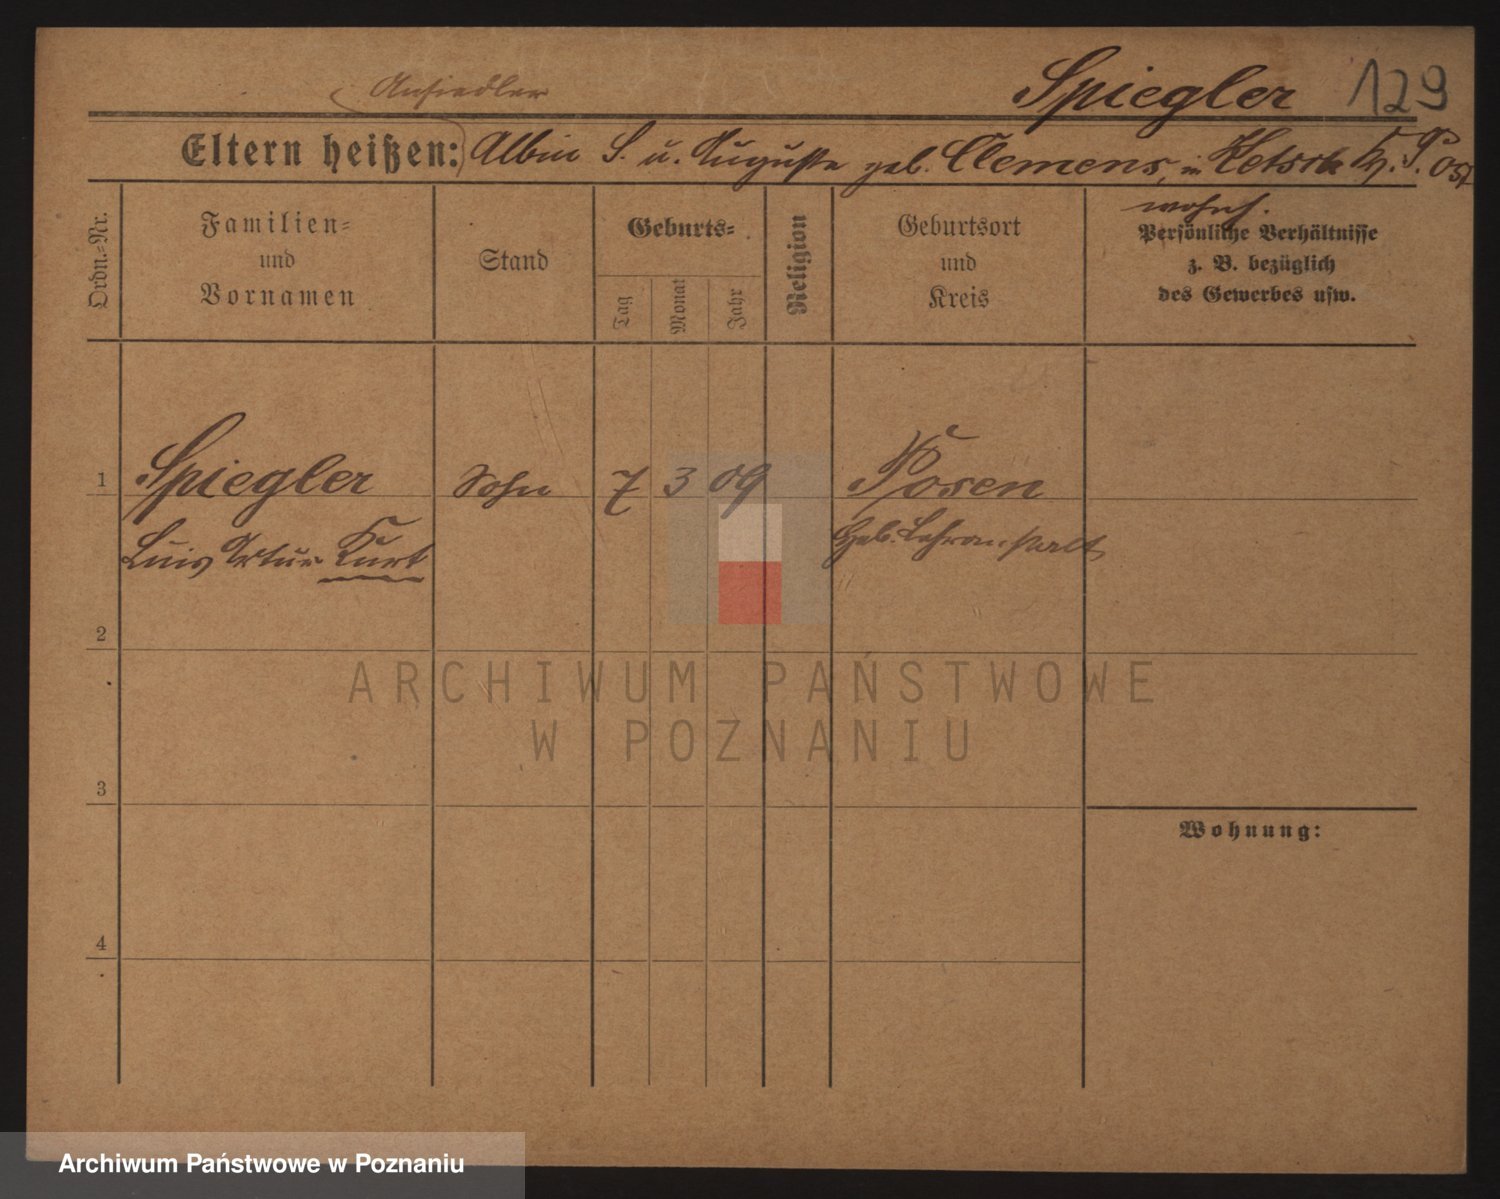 Ansiedler
Spiegler 129
Eltern heißen: Albin S. u. Auguste geb. Clemens, in Ketsch Kr. P. Ost
wohnh.
Ordn.=Nr.
Familien=
und
Vornamen
Stand
Geburts=
Tag
Monat
Jahr
Religion
Geburtsort
und
Kreis
Persönliche Verhältnisse
z. B. bezüglich
des Gewerbes usw.
1 Spiegler Sohn 7 3 09 Posen
Luis Artur Kurt Heb. Lehranstalt
2
ARCHIWUM PAŃSTWOWE
W POZNANIU
3
Wohnung:
4
Archiwum Państwowe w Poznaniu